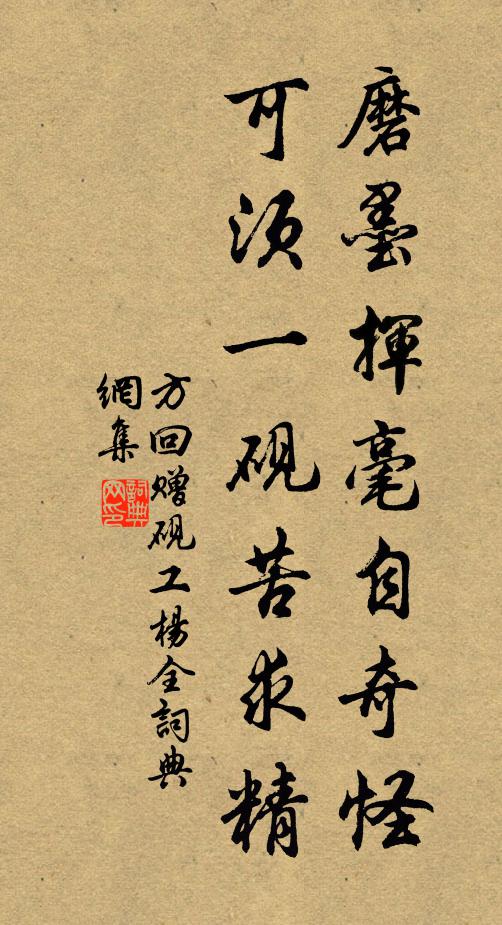 磨墨揮毫自奇怪
可須一硯苦求精
方回赠硯工楊全詞典
網集
詞典
网印